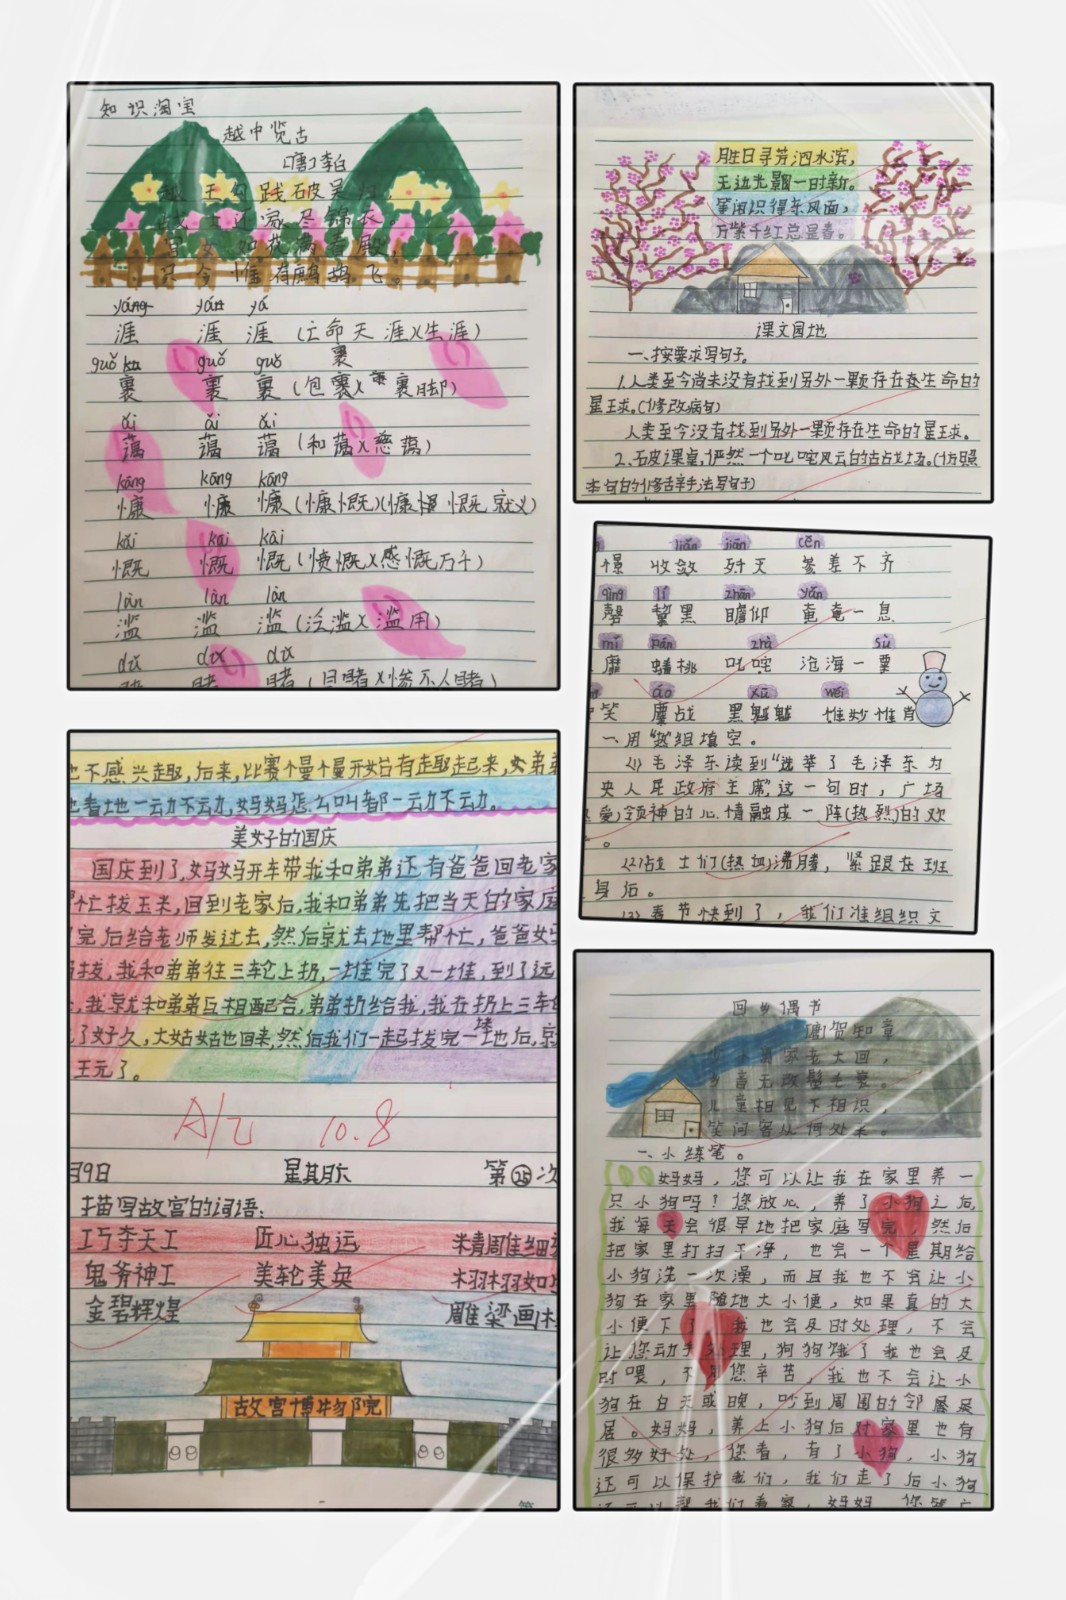 知识淘宝
越中览古
[唐]李白
越王勾践破吴归,
战士还家尽锦衣。
宫女如花满春殿,
只今惟有鹧鸪飞。
yáng yán yá
涯 涯 涯(亡命天涯)(生涯)
guǒ ka guǒ guǒ 裹
裹 裹 裹(包裹)(裹脚)
ǎi ǎi ǎi
蔼 蔼 蔼(和蔼)(慈蔼)
kāng kāng kāng
慷 慷 慷(慷慨)(慷慨就义)
kǎi kǎi kǎi
慨 慨 慨(愤慨)(感慨万千)
làn làn làn
滥 滥 滥(泛滥)(滥用)
dǔ dǔ dǔ
睹 睹 睹(目睹)(惨不人睹)
胜日寻芳泗水滨,
无边光景一时新。
等闲识得东风面,
万紫千红总是春。
课文园地
一、按要求写句子。
1.人类至今尚未没有找到另外一颗存在在生命的
星球。(修改病句)
人类至今没有找到另外一颗存在生命的星球。
2.石皮课桌,俨然一个叱咤风云的古战场。(仿照
本句的修辞手法写句子)
liǎn jiān cēn
憬 收敛 歼灭 参差不齐
qìng lí zhān yǎn
磬 黧黑 瞻仰 奄奄一息
mí pán zhà sù
靡 蟠桃 叱咤 沧海一粟
áo xū wéi
笑 鏖战 黑魆魆 惟妙惟肖
一、用“热”组填空。
(1)毛泽东读到“选举了毛泽东为
央人民政府主席”这一句时,广场
爱)领神的心情融成一阵(热烈)的欢
。
(2)战士们(热血)沸腾,紧跟在班
身后。
(3)春节快到了,我们准组织文
也不感兴趣,后来,比赛慢慢开始有趣起来,女弟弟
也看地一动不动,妈妈怎么叫都一动不动。
美好的国庆
国庆到了,妈妈开车带我和弟弟还有爸爸回老家
忙拔玉米,回到老家后,我和弟弟先把当天的家庭
完后给老师发过去,然后就去地里帮忙,爸爸妈
拔,我和弟弟往三轮上扔,一堆完了又一堆,到了远
,我就和弟弟互相配合,弟弟扔给我,我在扔上三车
了好久,大姑姑也回来,然后我们一起拔完一块地后,京
王元了。
A/乙 10.8
月9日 星期六 第25次
描写故宫的词语:
巧夺天工 匠心独运 精雕细
鬼斧神工 美轮美奂 栩栩如
金碧辉煌 雕梁画
故宫博物院
回乡偶书
[唐]贺知章
少小离家老大回,
乡音无改鬓毛衰。
儿童相见不相识,
笑问客从何处来。
一、小练笔。
妈妈,您可以让我在家里养一
只小狗吗?您放心,养了小狗之后,
我每天会很早地把家庭写完,然后
把家里打扫干净,也会一个星期给
小狗洗一次澡,而且我也不会让小
狗在家里随地大小便,如果真的大
小便下了,我也会及时处理,不会
让您动手处理,狗狗饿了我也会及
时喂,不用您辛苦,我也不会让小
狗在白天或晚,吵到周围的邻居
居。妈妈,养上小狗后对家里也有
很多好处,您看,有了小狗,小狗
还可以保护我们,我们走了后小狗
还可以帮我们看家,妈妈,您